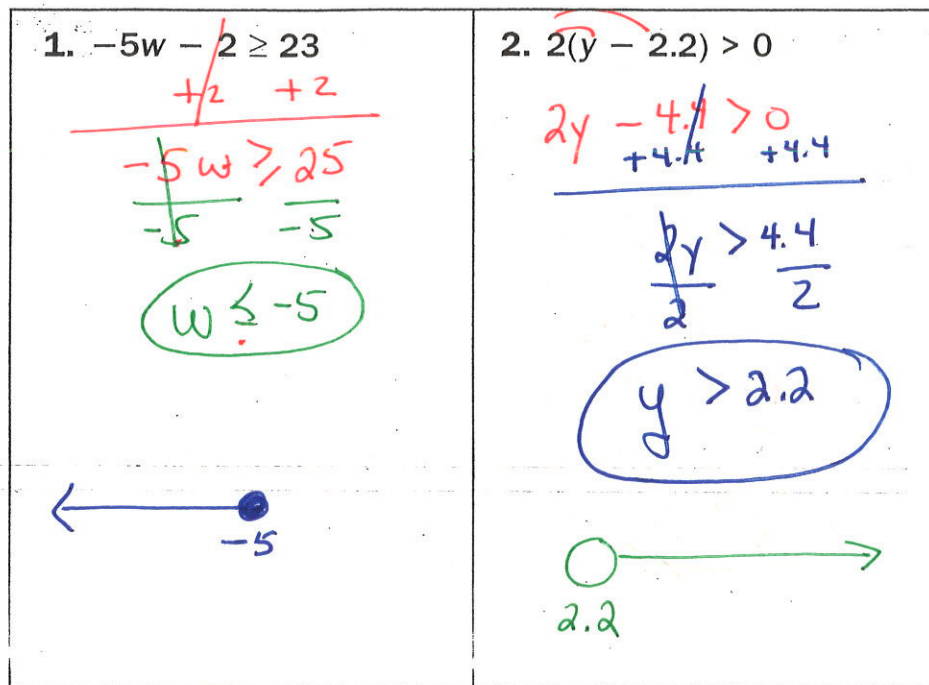 1. −5w − 2 ≥ 23
+2 +2
-5w ≥ 25
-5 -5
w ≤ -5
-5
2. 2(y − 2.2) > 0
2y - 4.4 > 0
+4.4 +4.4
2y > 4.4
2 2
y > 2.2
2.2